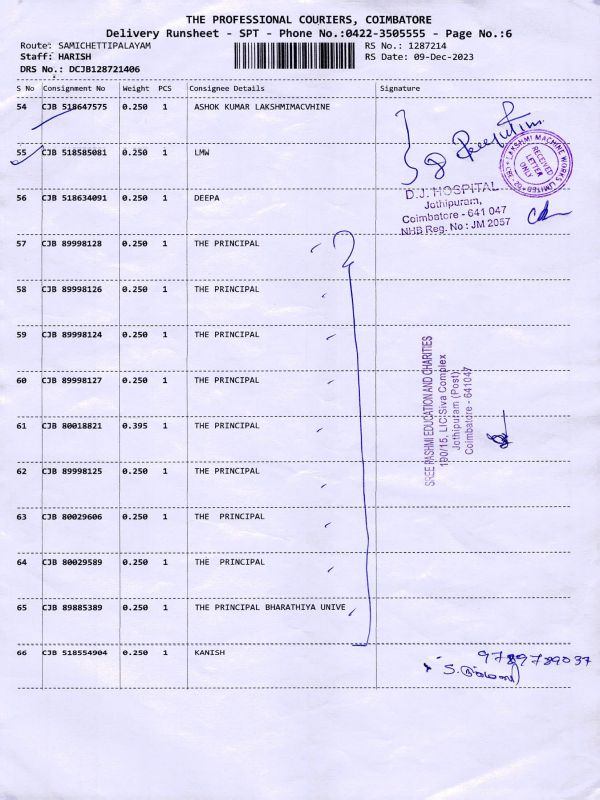 THE PROFESSIONAL COURIERS, COIMBATORE
Delivery Runsheet - SPT - Phone No.:0422-3505555 - Page No.:6
Route: SAMICHETTIPALAYAM
Staff: HARISH
DRS No.: DCJB128721406
RS No.: 1287214
RS Date: 09-Dec-2023
S No Consignment No Weight PCS Consignee Details Signature
54 CJB 518647575 0.250 1 ASHOK KUMAR LAKSHMIMACVHINE
55 CJB 518585081 0.250 1 LMW
LAKSHMI MACHINE WORKS LIMITED
RECEIVED
LETTER
ONLY
56 CJB 518634091 0.250 1 DEEPA
D.J. HOSPITAL
Jothipuram,
Coimbatore - 641 047
NHB Reg. No : JM 2057
57 CJB 89998128 0.250 1 THE PRINCIPAL
58 CJB 89998126 0.250 1 THE PRINCIPAL
59 CJB 89998124 0.250 1 THE PRINCIPAL
60 CJB 89998127 0.250 1 THE PRINCIPAL
61 CJB 80018821 0.395 1 THE PRINCIPAL
62 CJB 89998125 0.250 1 THE PRINCIPAL
SREE RASHMI EDUCATION AND CHARITIES
190/15, LIC Siva Complex
Jothipuram (Post)
Coimbatore - 641047
63 CJB 80029606 0.250 1 THE PRINCIPAL
64 CJB 80029589 0.250 1 THE PRINCIPAL
65 CJB 89885389 0.250 1 THE PRINCIPAL BHARATHIYA UNIVE
66 CJB 518554904 0.250 1 KANISH
9789789037